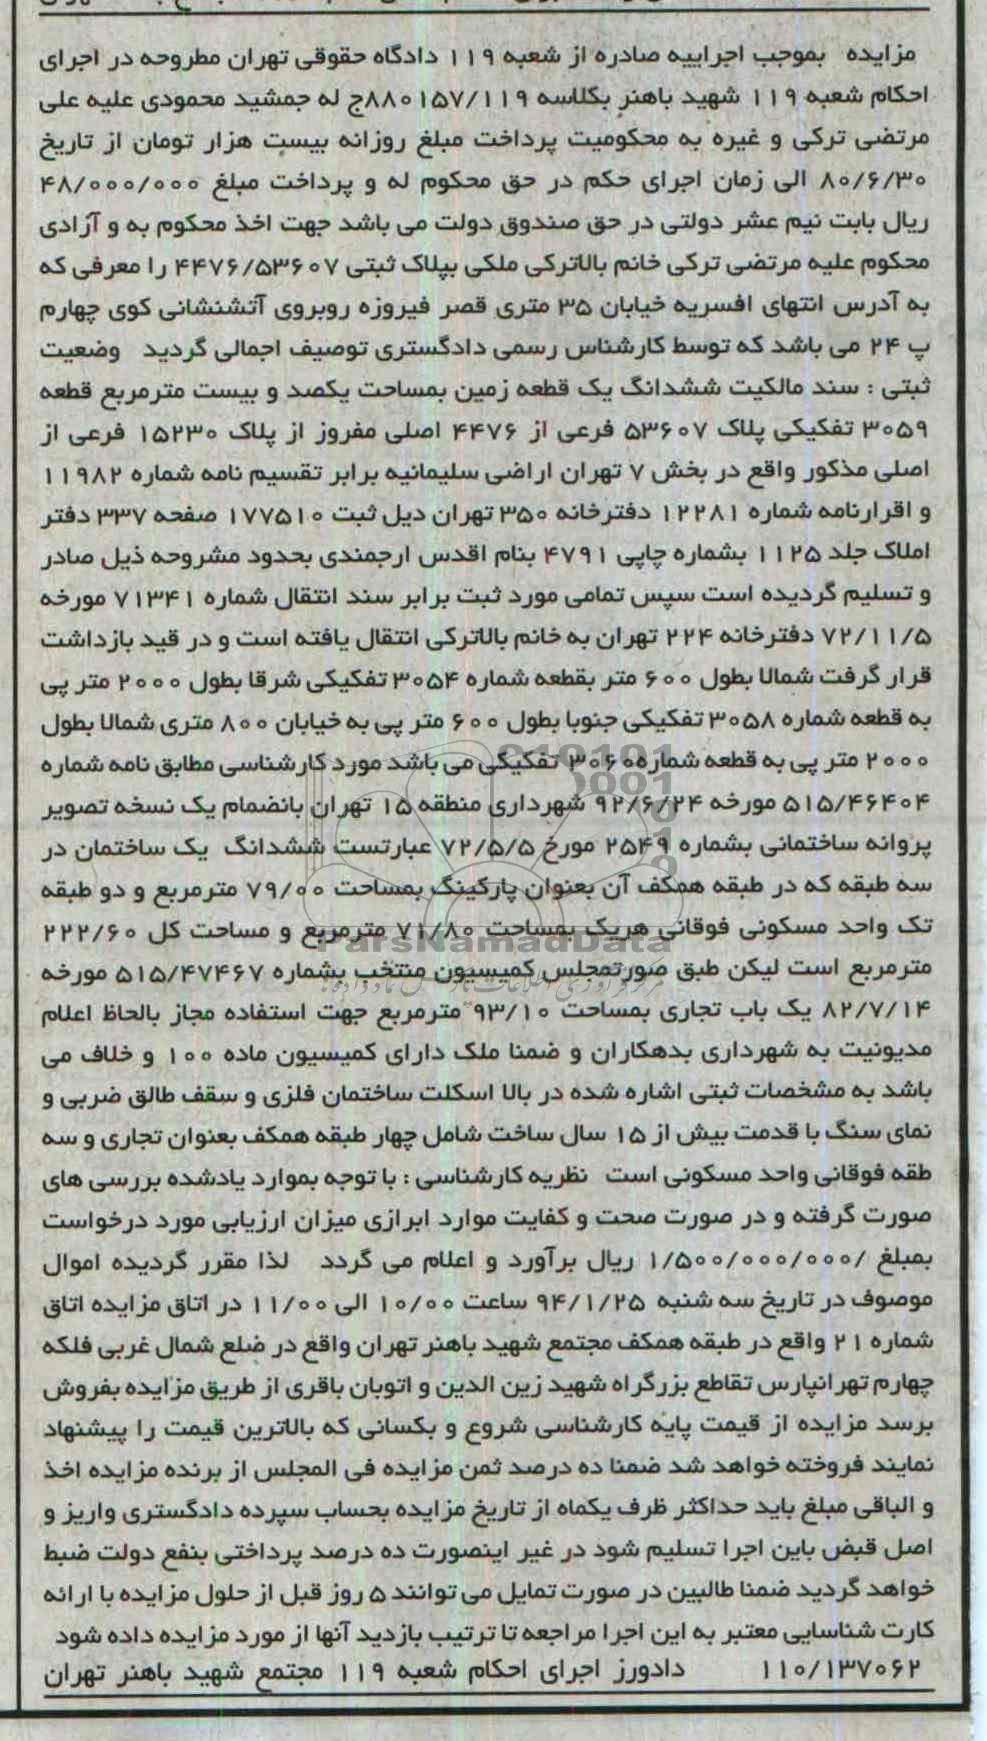 مزایده بموجب اجراییه صادره از شعبه ۱۱۹ دادگاه حقوقی تهران مطروحه در اجرای
احکام شعبه ۱۱۹ شهید باهنر بکلاسه ۸۸۰۱۵۷/۱۱۹ج له جمشید محمودی علیه علی
مرتضی ترکی و غیره به محکومیت پرداخت مبلغ روزانه بیست هزار تومان از تاریخ
۸۰/۶/۳۰ الی زمان اجرای حکم در حق محکوم له و پرداخت مبلغ ۴۸/۰۰۰/۰۰۰
ریال بابت نیم عشر دولتی در حق صندوق دولت می باشد جهت اخذ محکوم به و آزادی
محکوم علیه مرتضی ترکی خانم بالاترکی ملکی بپلاک ثبتی ۴۴۷۶/۵۳۶۰۷ را معرفی که
به آدرس انتهای افسریه خیابان ۳۵ متری قصر فیروزه روبروی آتشنشانی کوی چهارم
پ ۲۴ می باشد که توسط کارشناس رسمی دادگستری توصیف اجمالی گردید وضعیت
ثبتی : سند مالکیت ششدانگ یک قطعه زمین بمساحت یکصد و بیست مترمربع قطعه
۳۰۵۹ تفکیکی پلاک ۵۳۶۰۷ فرعی از ۴۴۷۶ اصلی مفروز از پلاک ۱۵۲۳۰ فرعی از
اصلی مذکور واقع در بخش ۷ تهران اراضی سلیمانیه برابر تقسیم نامه شماره ۱۱۹۸۲
و اقرارنامه شماره ۱۲۲۸۱ دفترخانه ۳۵۰ تهران دیل ثبت ۱۷۷۵۱۰ صفحه ۳۳۷ دفتر
املاک جلد ۱۱۲۵ بشماره چاپی ۴۷۹۱ بنام اقدس ارجمندی بحدود مشروحه ذیل صادر
و تسلیم گردیده است سپس تمامی مورد ثبت برابر سند انتقال شماره ۷۱۳۴۱ مورخه
۷۲/۱۱/۵ دفترخانه ۲۲۴ تهران به خانم بالاترکی انتقال یافته است و در قید بازداشت
قرار گرفت شمالا بطول ۶۰۰ متر بقطعه شماره ۳۰۵۴ تفکیکی شرقا بطول ۲۰۰۰ متر پی
به قطعه شماره ۳۰۵۸ تفکیکی جنوبا بطول ۶۰۰ متر پی به خیابان ۸۰۰ متری شمالا بطول
۲۰۰۰ متر پی به قطعه شماره ۳۰۶۰ تفکیکی می باشد مورد کارشناسی مطابق نامه شماره
۵۱۵/۴۶۴۰۴ مورخه ۹۲/۶/۲۴ شهرداری منطقه ۱۵ تهران بانضمام یک نسخه تصویر
پروانه ساختمانی بشماره ۲۵۴۹ مورخ ۷۲/۵/۵ عبارتست ششدانگ یک ساختمان در
سه طبقه که در طبقه همکف آن بعنوان پارکینگ بمساحت ۷۹/۰۰ مترمربع و دو طبقه
تک واحد مسکونی فوقانی هریک بمساحت ۷۱/۸۰ مترمربع و مساحت کل ۲۲۲/۶۰
مترمربع است لیکن طبق صورتمجلس کمیسیون منتخب بشماره ۵۱۵/۴۷۴۶۷ مورخه
۸۲/۷/۱۴ یک باب تجاری بمساحت ۹۳/۱۰ مترمربع جهت استفاده مجاز بالحاظ اعلام
مدیونیت به شهرداری بدهکاران و ضمنا ملک دارای کمیسیون ماده ۱۰۰ و خلاف می
باشد به مشخصات ثبتی اشاره شده در بالا اسکلت ساختمان فلزی و سقف طالق ضربی و
نمای سنگ با قدمت بیش از ۱۵ سال ساخت شامل چهار طبقه همکف بعنوان تجاری و سه
طقه فوقانی واحد مسکونی است نظریه کارشناسی : با توجه بموارد یادشده بررسی های
صورت گرفته و در صورت صحت و کفایت موارد ابرازی میزان ارزیابی مورد درخواست
بمبلغ /۱/۵۰۰/۰۰۰/۰۰۰ ریال برآورد و اعلام می گردد لذا مقرر گردیده اموال
موصوف در تاریخ سه شنبه ۹۴/۱/۲۵ ساعت ۱۰/۰۰ الی ۱۱/۰۰ در اتاق مزایده اتاق
شماره ۲۱ واقع در طبقه همکف مجتمع شهید باهنر تهران واقع در ضلع شمال غربی فلکه
چهارم تهرانپارس تقاطع بزرگراه شهید زین الدین و اتوبان باقری از طریق مزایده بفروش
برسد مزایده از قیمت پایه کارشناسی شروع و بکسانی که بالاترین قیمت را پیشنهاد
نمایند فروخته خواهد شد ضمنا ده درصد ثمن مزایده فی المجلس از برنده مزایده اخذ
و الباقی مبلغ باید حداکثر ظرف یکماه از تاریخ مزایده بحساب سپرده دادگستری واریز و
اصل قبض باین اجرا تسلیم شود در غیر اینصورت ده درصد پرداختی بنفع دولت ضبط
خواهد گردید ضمنا طالبین در صورت تمایل می توانند ۵ روز قبل از حلول مزایده با ارائه
کارت شناسایی معتبر به این اجرا مراجعه تا ترتیب بازدید آنها از مورد مزایده داده شود
۱۱۰/۱۳۷۰۶۲ دادورز اجرای احکام شعبه ۱۱۹ مجتمع شهید باهنر تهران
ParsNamadData